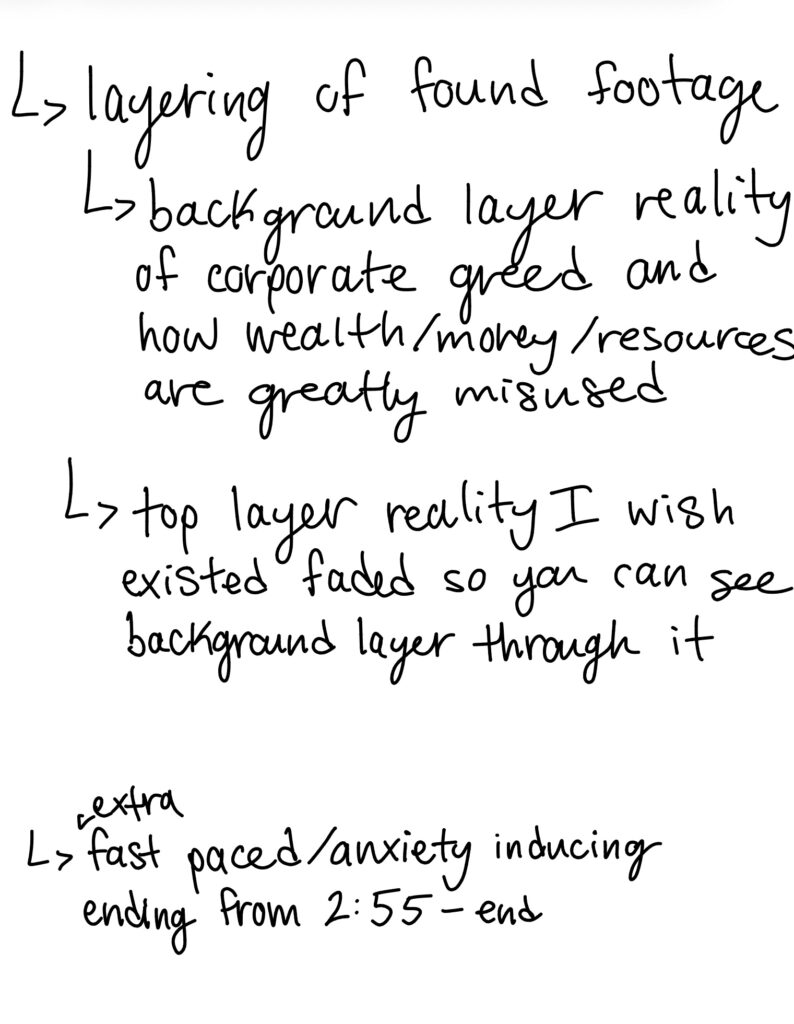 ↳ layering of found footage
↳ background layer reality
of corporate greed and
how wealth/money/resources
are greatly misused
↳ top layer reality I wish
existed faded so you can see
background layer through it
extra
↳ fast paced/anxiety inducing
ending from 2:55 - end